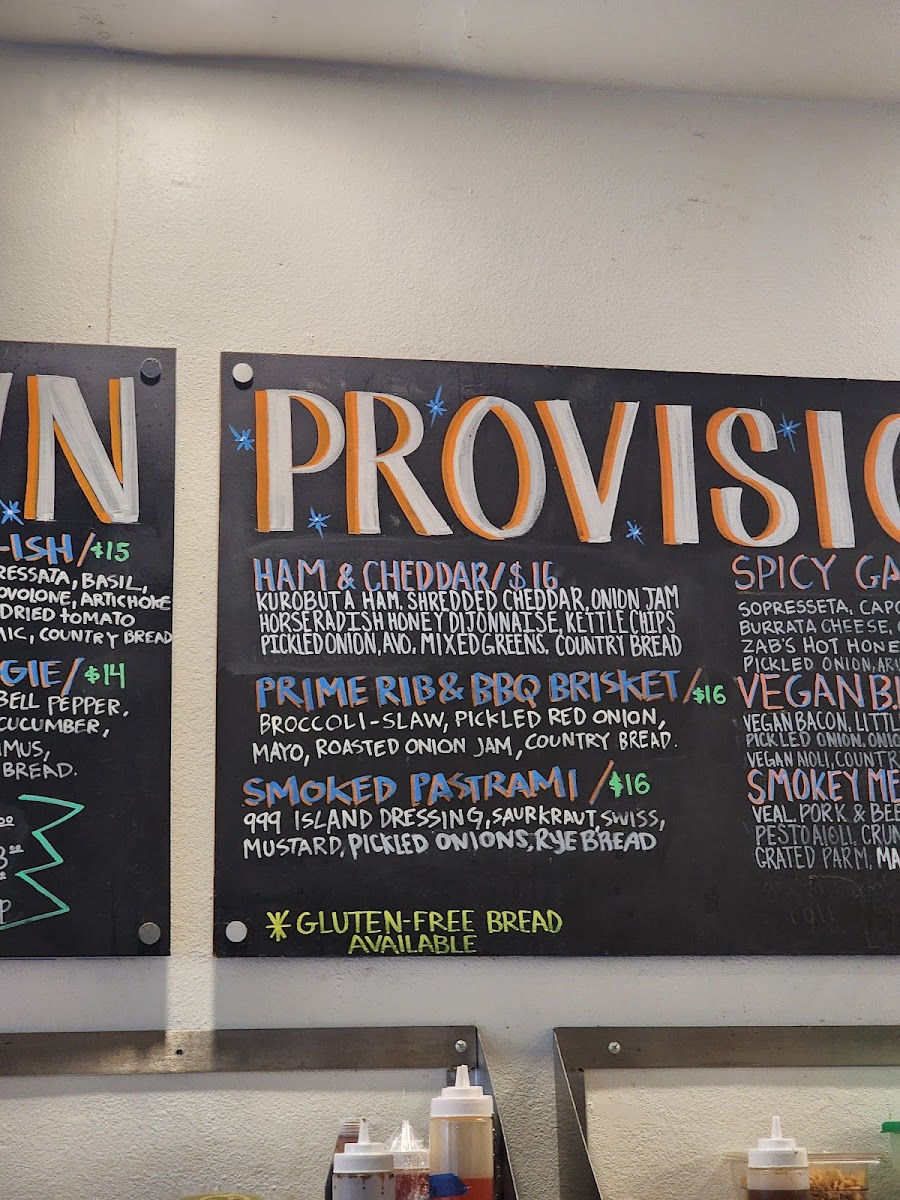 N
-ISH/$15
RESSATA, BASIL,
OVOLONE, ARTICHOKE
DRIED TOMATO
IC, COUNTRY BREAD
GIE/$14
BELL PEPPER,
CUCUMBER,
MUS,
BREAD.
PROVISIO
HAM & CHEDDAR/$16
KUROBUTA HAM. SHREDDED CHEDDAR, ONION JAM
HORSERADISH HONEY DIJONNAISE, KETTLE CHIPS
PICKLED ONION, AVO. MIXED GREENS. COUNTRY BREAD
PRIME RIB & BBQ BRISKET/$16
BROCCOLI-SLAW, PICKLED RED ONION,
MAYO, ROASTED ONION JAM, COUNTRY BREAD.
SMOKED PASTRAMI/$16
999 ISLAND DRESSING, SAURKRAUT, SWISS,
MUSTARD, PICKLED ONIONS, RYE BREAD
* GLUTEN-FREE BREAD
AVAILABLE
SPICY GA
SOPRESSETA, CAPO
BURRATA CHEESE,
ZAB'S HOT HONE
PICKLED ONION, AR
VEGAN B.
VEGAN BACON, LITTL
PICKLED ONION, ONIO
VEGAN AIOLI, COUNTR
SMOKEY ME
VEAL. PORK & BEE
PESTO AIOLI, CRUN
GRATED PARM, MA